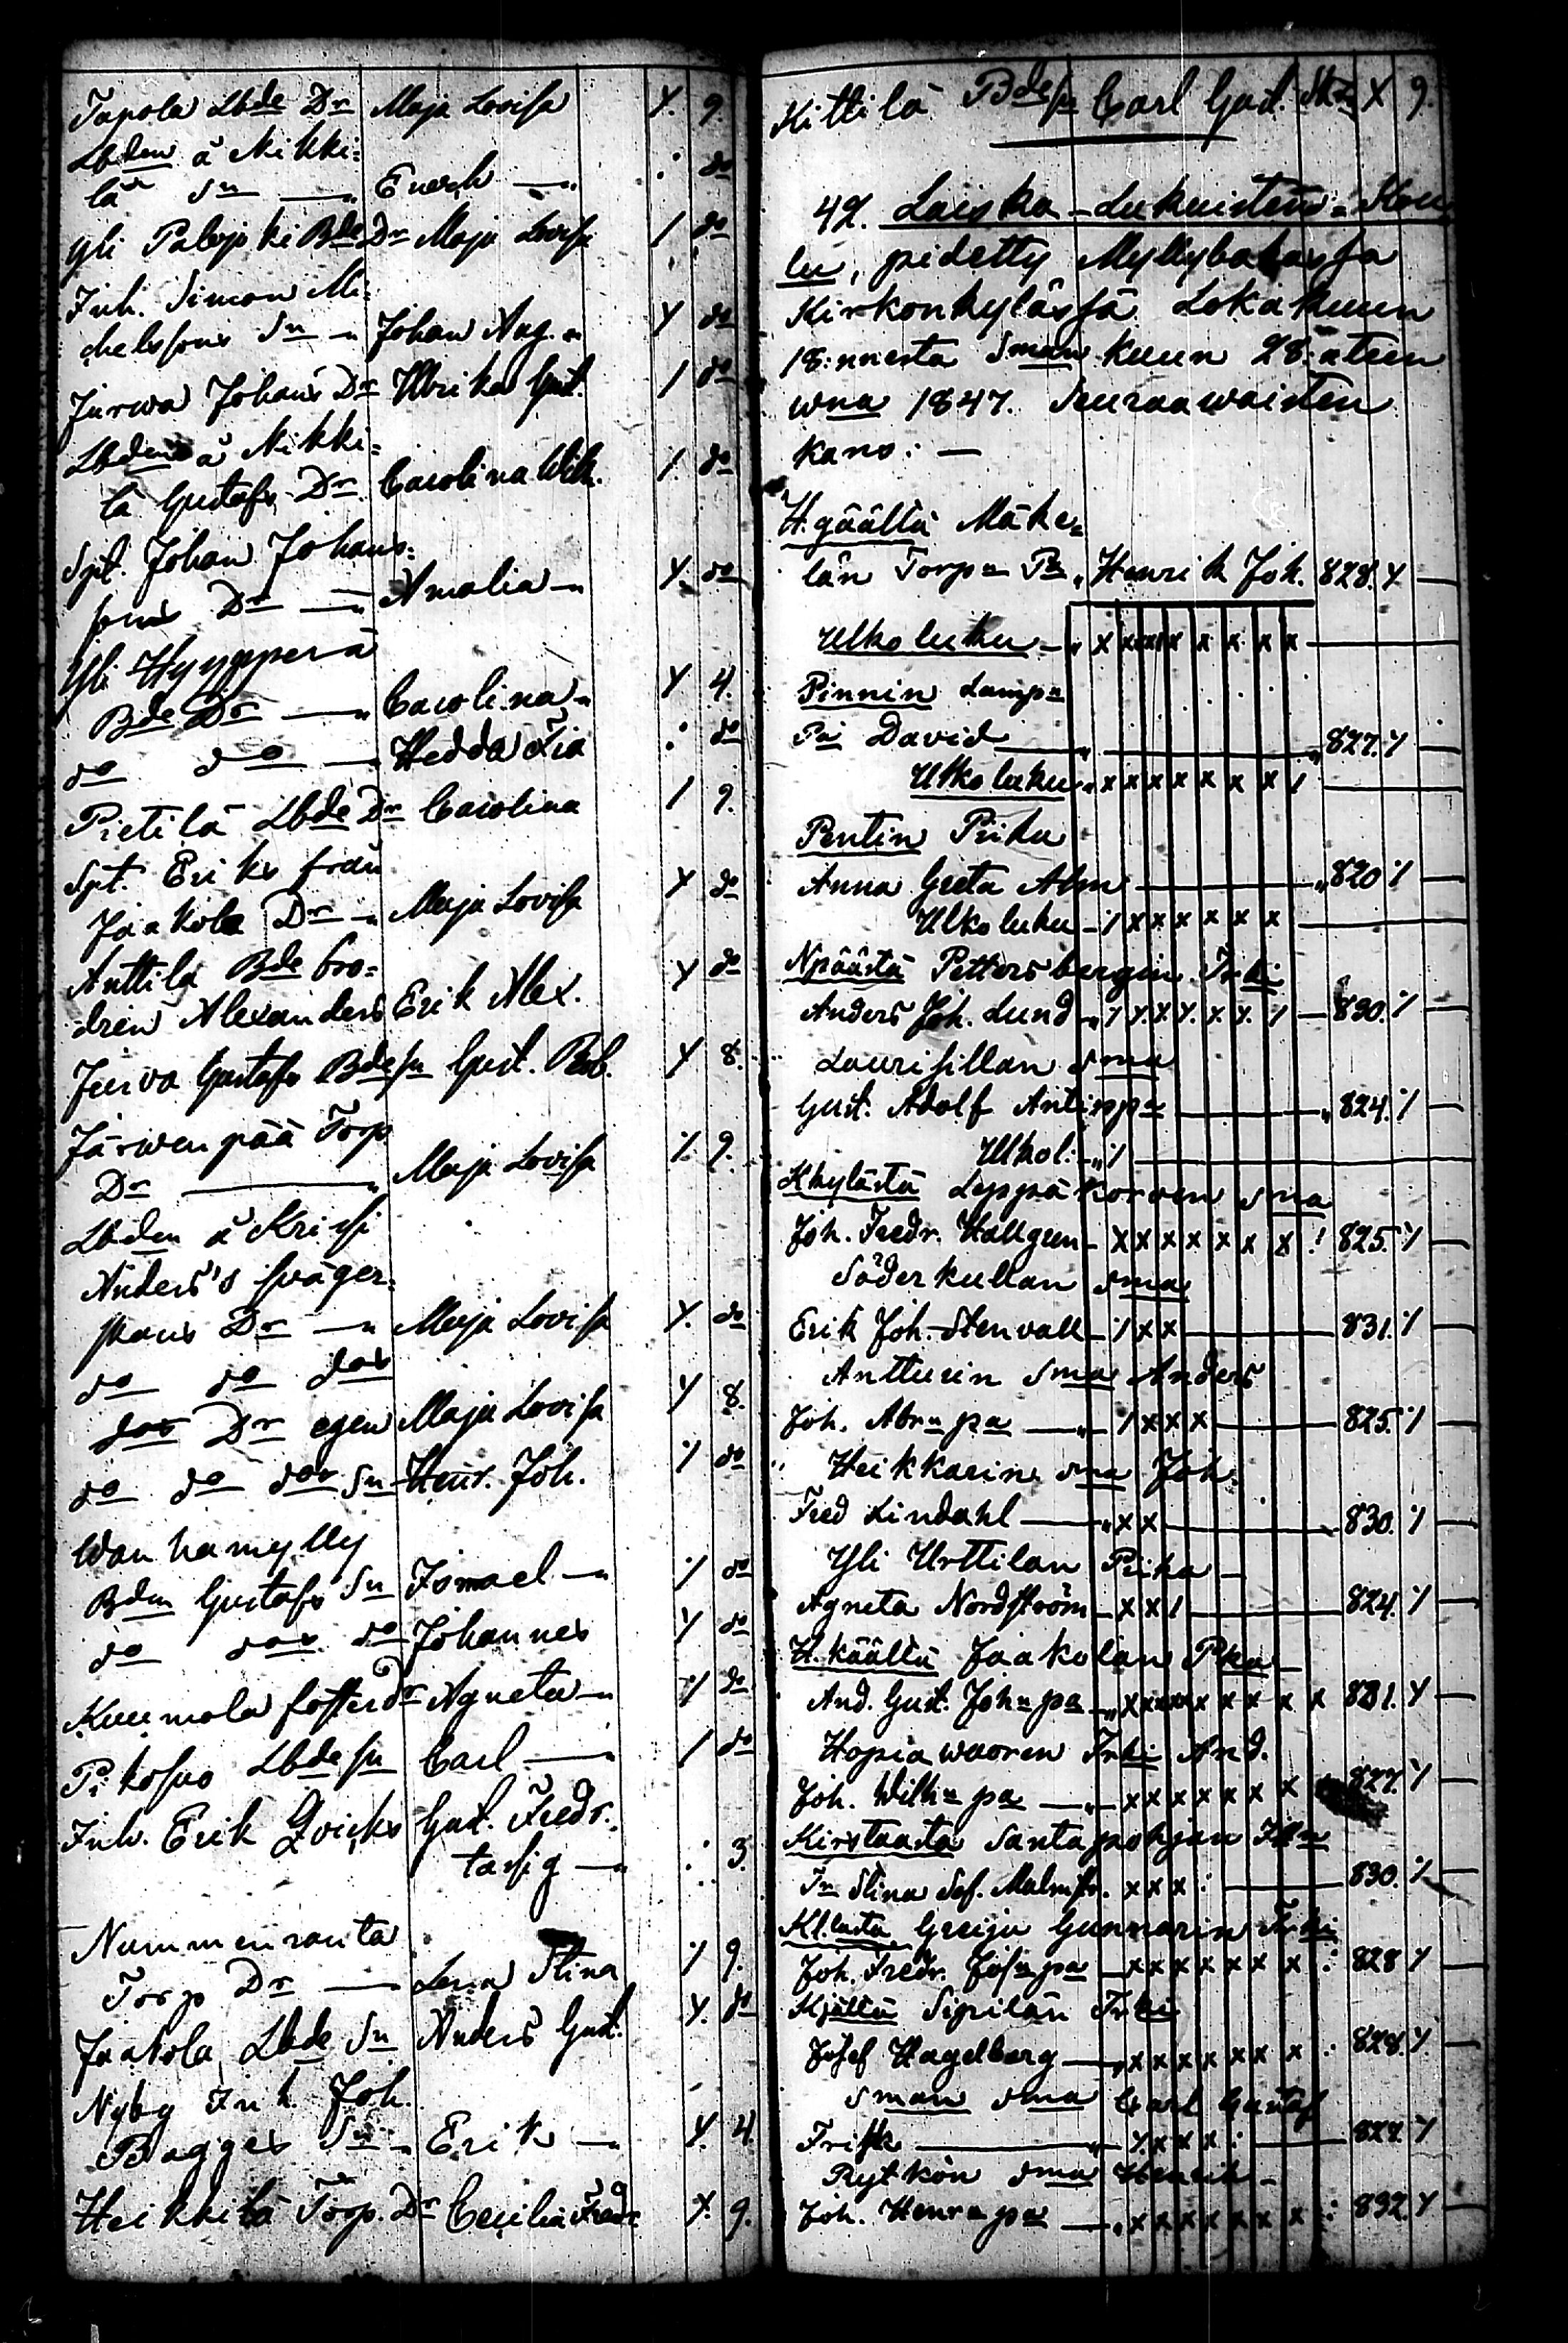 Tapola Lbde Dr Maja Lovisa X. 9.
Lbden å Mikki=
lä Sn — Enoch — : do
Yli Palojoki Bde Dr Maja Lovisa / do
Inh. Simon Mi=
chelssons Sn — Johan Aug. X do
Jurwa Johans Dr Ulrika Gust. / do
Lbdens å Mikki=
lä Gustafs Dr Carolina Wilh. / do
Spt. Johan Johans=
sons Dr — Amalia — X do
Yli Hyypperä
Bde Dr — Carolina X 4.
do do — Hedda Fia : do
Pietilä Lbde Dr Carolina / 9.
Spt. Eriks från
Jaakola Dr — Maja Lovisa X do
Anttila Bde bro=
dren Alexanders Erik Alex. X do
Jurva Gustafs Bdesn Gust. Rob. X 8.
Järwenpää Torp
Dr — Maja Lovisa ٪ 9.
Lbden å Krissi
Anders's swäger=
skans Dr — Maja Lovisa X. do
do do dos
dos Dr egen Maja Lovisa X 8.
do do dos Sn Henr. Joh. ٪ do
Wanhamylly
Bden Gustafs Sn Ismael — ٪ do
do dos do Johannes X do
Kuumola fosterdr Agneta — ٪ do
Pikosuo Lbdesn Carl — / do
Inh. Erik Qvicks Gust. Fredr.
: 3.
Nummenranta
Torp Dr — Lena Stina ٪ 9.
Jaakola Lbde Sn Anders Gust. X. do
Nyby Inh. Joh.
Bagges Sn — Erik — X. 4.
Heikkilä Torp. Dr Cecilia Fredr. X. 9.
Kittilä Bdesn Carl Gust. X 9.
42. Laiska-Lukuisten Kou
lu, pidetty Myllybackassa
Kirkonkylässä Lokakuun
18:nnesta Sman kuun 28:ateen
wna 1847. Seuraawaisten
kans: —
H.päältä Mäke=
län Torp Henrik Joh. 828. X —
Ulkoluku — x x x x x x x x x
Pinnin Lamp
Pa David — 827. ٪ —
Ulkoluku x x x x x x x x /
Pentin Piika
Anna Greta Abm — 820 ٪ —
Ulkoluku — ٪ x x x x x x
Npäästä Pettersbergin Trki
Anders Joh. Lund — 830. ٪ —
Laurisillan Sma
Gust. Adolf Antinpa — 824. ٪ —
Ulkol: — ٪
Khylästä Leppäkorwen Sma
Joh. Fredr. Hallgren — x x x x x x x ! 825. ٪ —
Söderkullan Sma
Erik Joh. Stenvall — ٪ x x — 831. ٪
Antturin Sma Anders
Joh. Abrn pa — ٪ x x x — 825. ٪
Heikkarin Sma Joh.
Fred Lindahl — x x — 830. ٪ —
Yli Urttilan Piika —
Agneta Nordström — x x / — 824. ٪ —
H.käältä Jaakolan Pka —
And. Gust. John pa — x x x x x x x x x 831. X —
Hopiawuoren Trki And.
Joh. Wilhn pa — x x x x x x x 827. X —
Kirstaasta Santapohjan
Stina Sof. x x x : — 830. ٪ —
Greiju Gunnarin Trki
Joh. Fredr. Josn pa — x x x x x x x : 828 X —
Kjältä Sipilän Trki
Josef Hagelberg — x x x x x x x : 828. X —
Sman Sma Carl Gustaf
Frisk — X x x x : — 827. X
Rytkön Sma Henrik —
Joh. Henrn pa — x x x x x x x : 832. X —